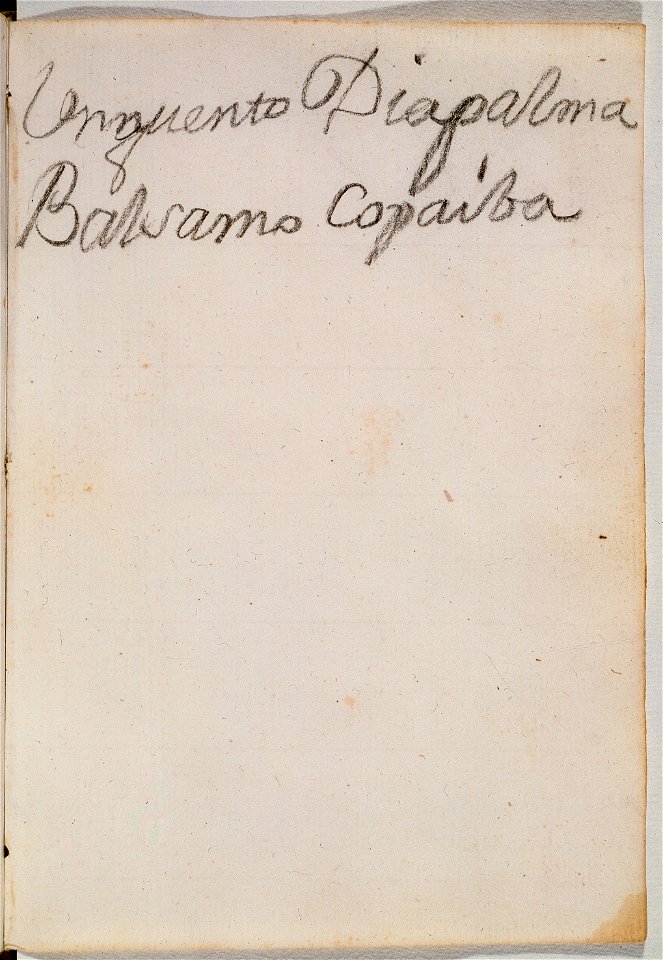 Unguento Diapalma
Balsamo Copaiba